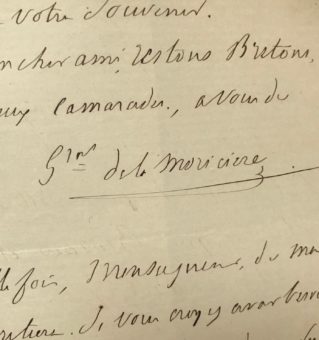 votre souvenir.
cher ami, restons Bretons,
Camarades, a vous de
Gral de la Moricière
fois, Monseigneur, de ma
Si vous croyez avoir